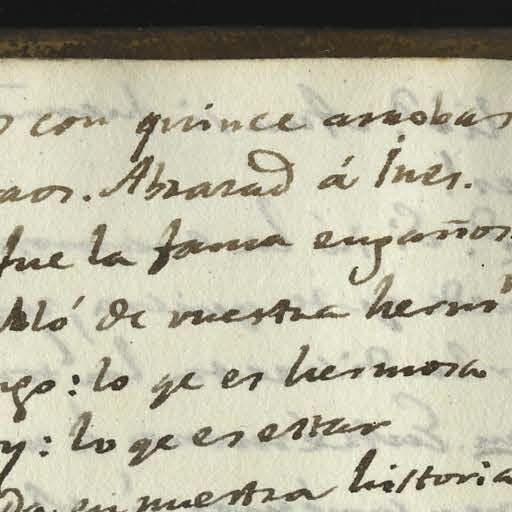 con quince arrobas
Abrazad á Ines.
fue la fama engaños
de vuestra herm
: lo qe es hermosa
y: lo qe es estar
en nuestra historia